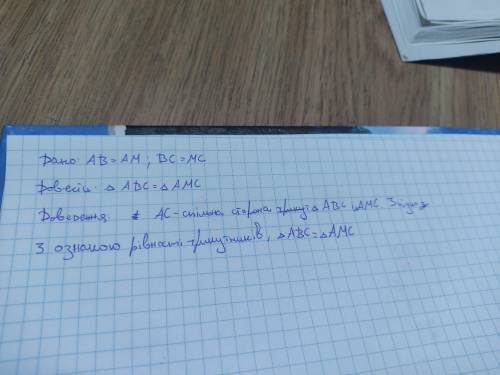 Дано: AB=AM, BC=MC
Довести: △ ABC=△AMC
Доведення: AC-спільна сторона △ABC і △AMC. Згідно з
3 ознакою рівності трикутників, △ABC=△AMC